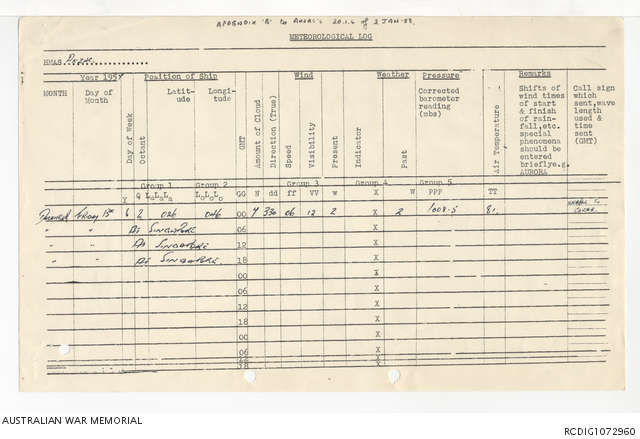 APPENDIX 'B' to ANRAL's 20.1.6 of 2 JAN 58.
METEOROLOGICAL LOG
HMAS
Year 195 Position of Ship Wind Weather Pressure Remarks
MONTH Day of Month Day of Week Octant Latitude Longitude GMT Amount of Cloud Direction (True) Speed Visibility Present Indicator Past Corrected barometer reading (mbs) Air Temperature Shifts of wind times of start & finish of rainfall, etc. special phenomena should be entered brieflye.g. AURORA Call sign which sent, wave length used & time sent (GMT)
Group 1 Group 2 Group 3 Group 4 Group 5
Y Q LaLaLa LoLoLo GG N dd ff VV w X W PPP TT
Friday 6 2 026 046 00 4 330 06 12 2 X 2 1008.5 81.
" " At SINGAPORE 06 X
" " At SINGAPORE 12 X
" " At SINGAPORE. 18 X
00 X
06 X
12 X
18 X
00 X
06 X
12 X
18 X
AUSTRALIAN WAR MEMORIAL
RCDIG1072960